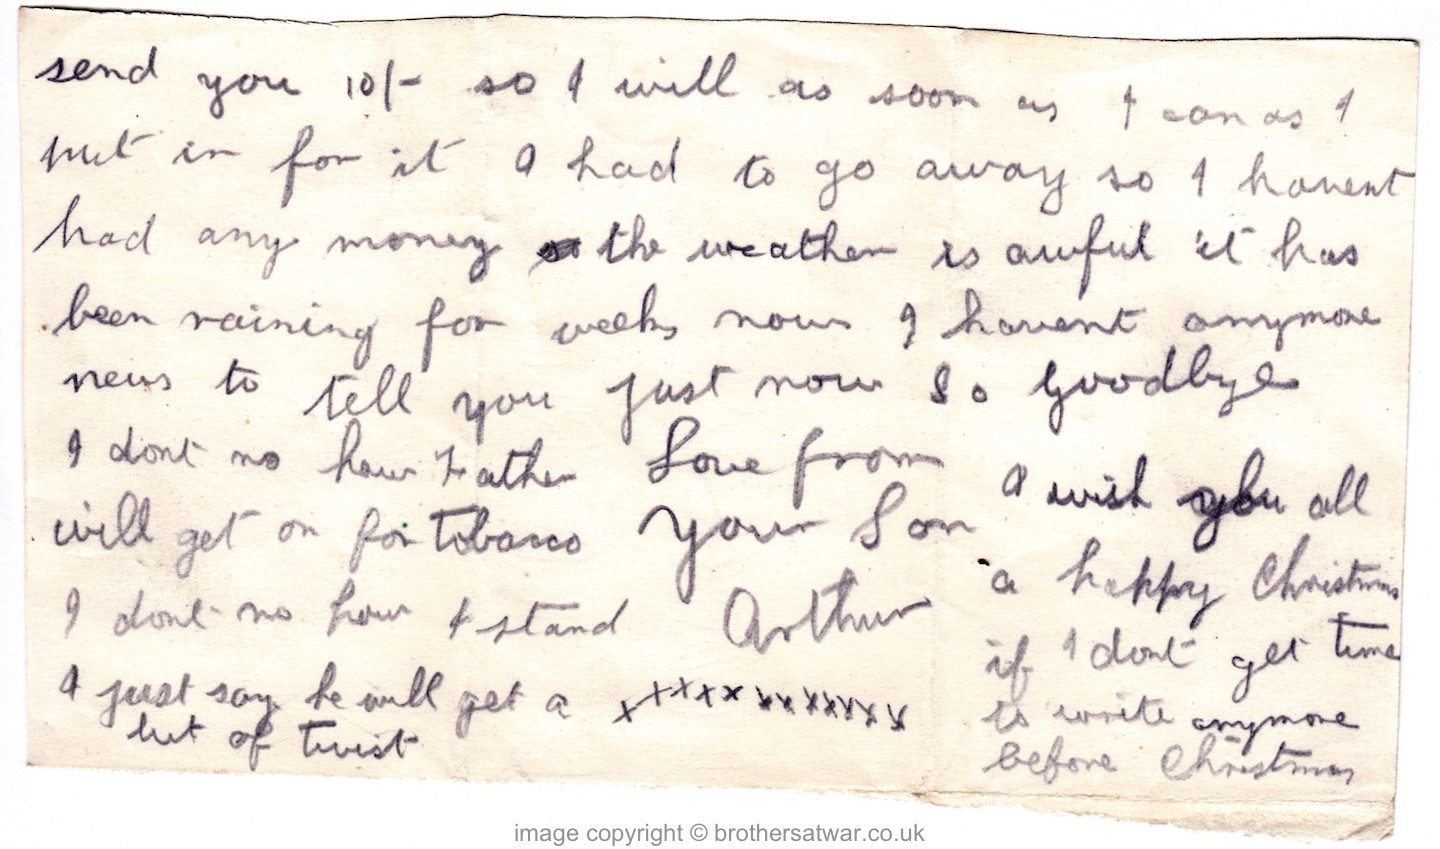 send you 10/- so I will as soon as I can as I
put in for it I had to go away so I havent
had any money the weather is awful it has
been raining for weeks now I havent anymore
news to tell you just now So Goodbye
Love from
Your Son
Arthur
xxxxxxxxxxxx
I dont no how Father
will get on for Tobacco
I dont no how I stand
I just say he will get a
bit of twist
I wish you all
a happy Christmas
if I dont get time
to write anymore
before Christmas
image copyright © brothersatwar.co.uk